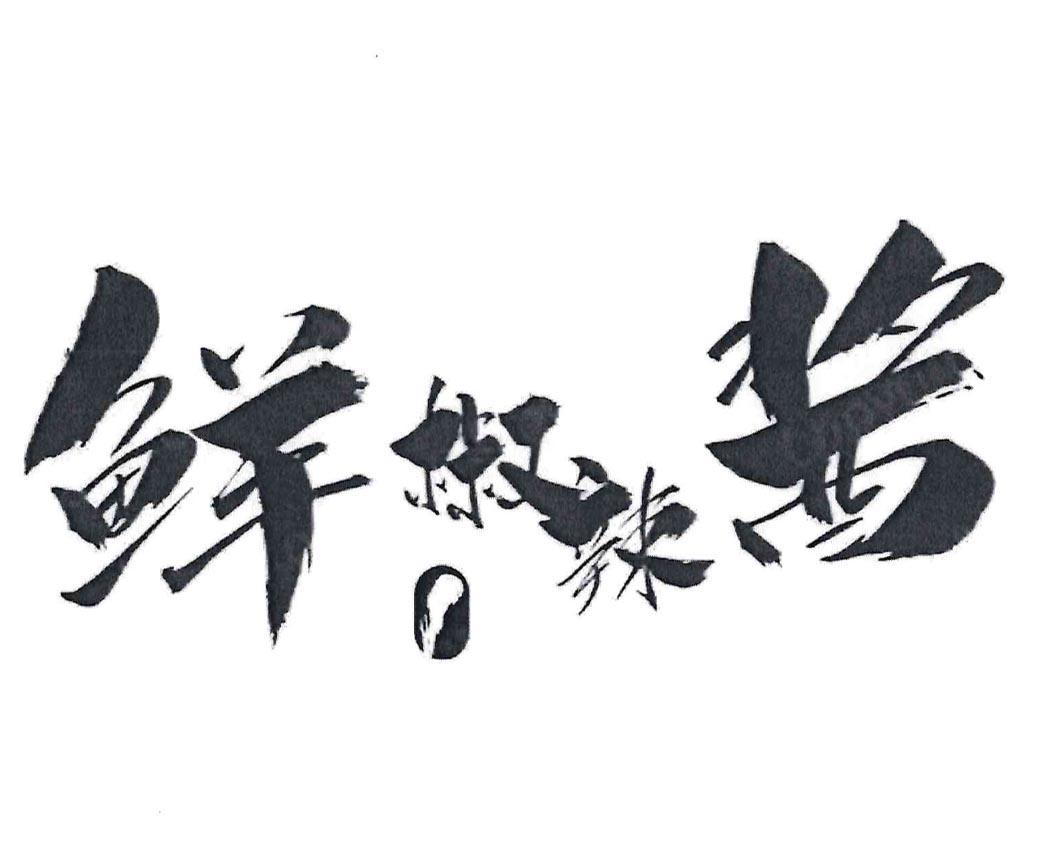 鲜椒辣酱